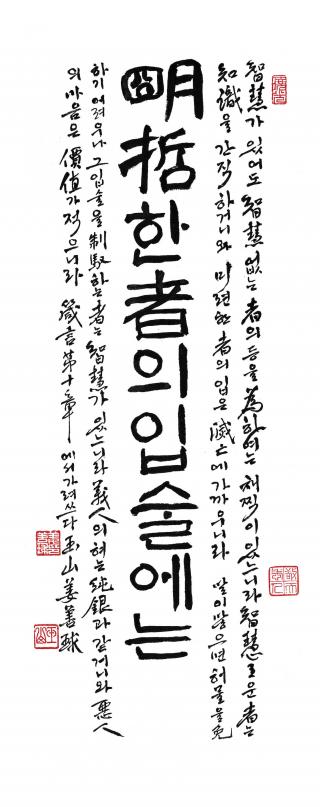 明哲한者의입술에는
智慧가 있어도 智慧 없는 者의 등을 為하여는 채찍이 있느니라 智慧로운 者는
知識을 간직하거니와 미련한 者의 입은 滅亡에 가까우니라 말이 많으면 허물을 免
하기 어려우나 그 입술을 制馭하는 者는 智慧가 있느니라 義人의 혀는 純銀과 같거니와 悪人
의 마음은 價値가 적으니라 箴言 第十章에서 가려쓰다 玉山 姜善球